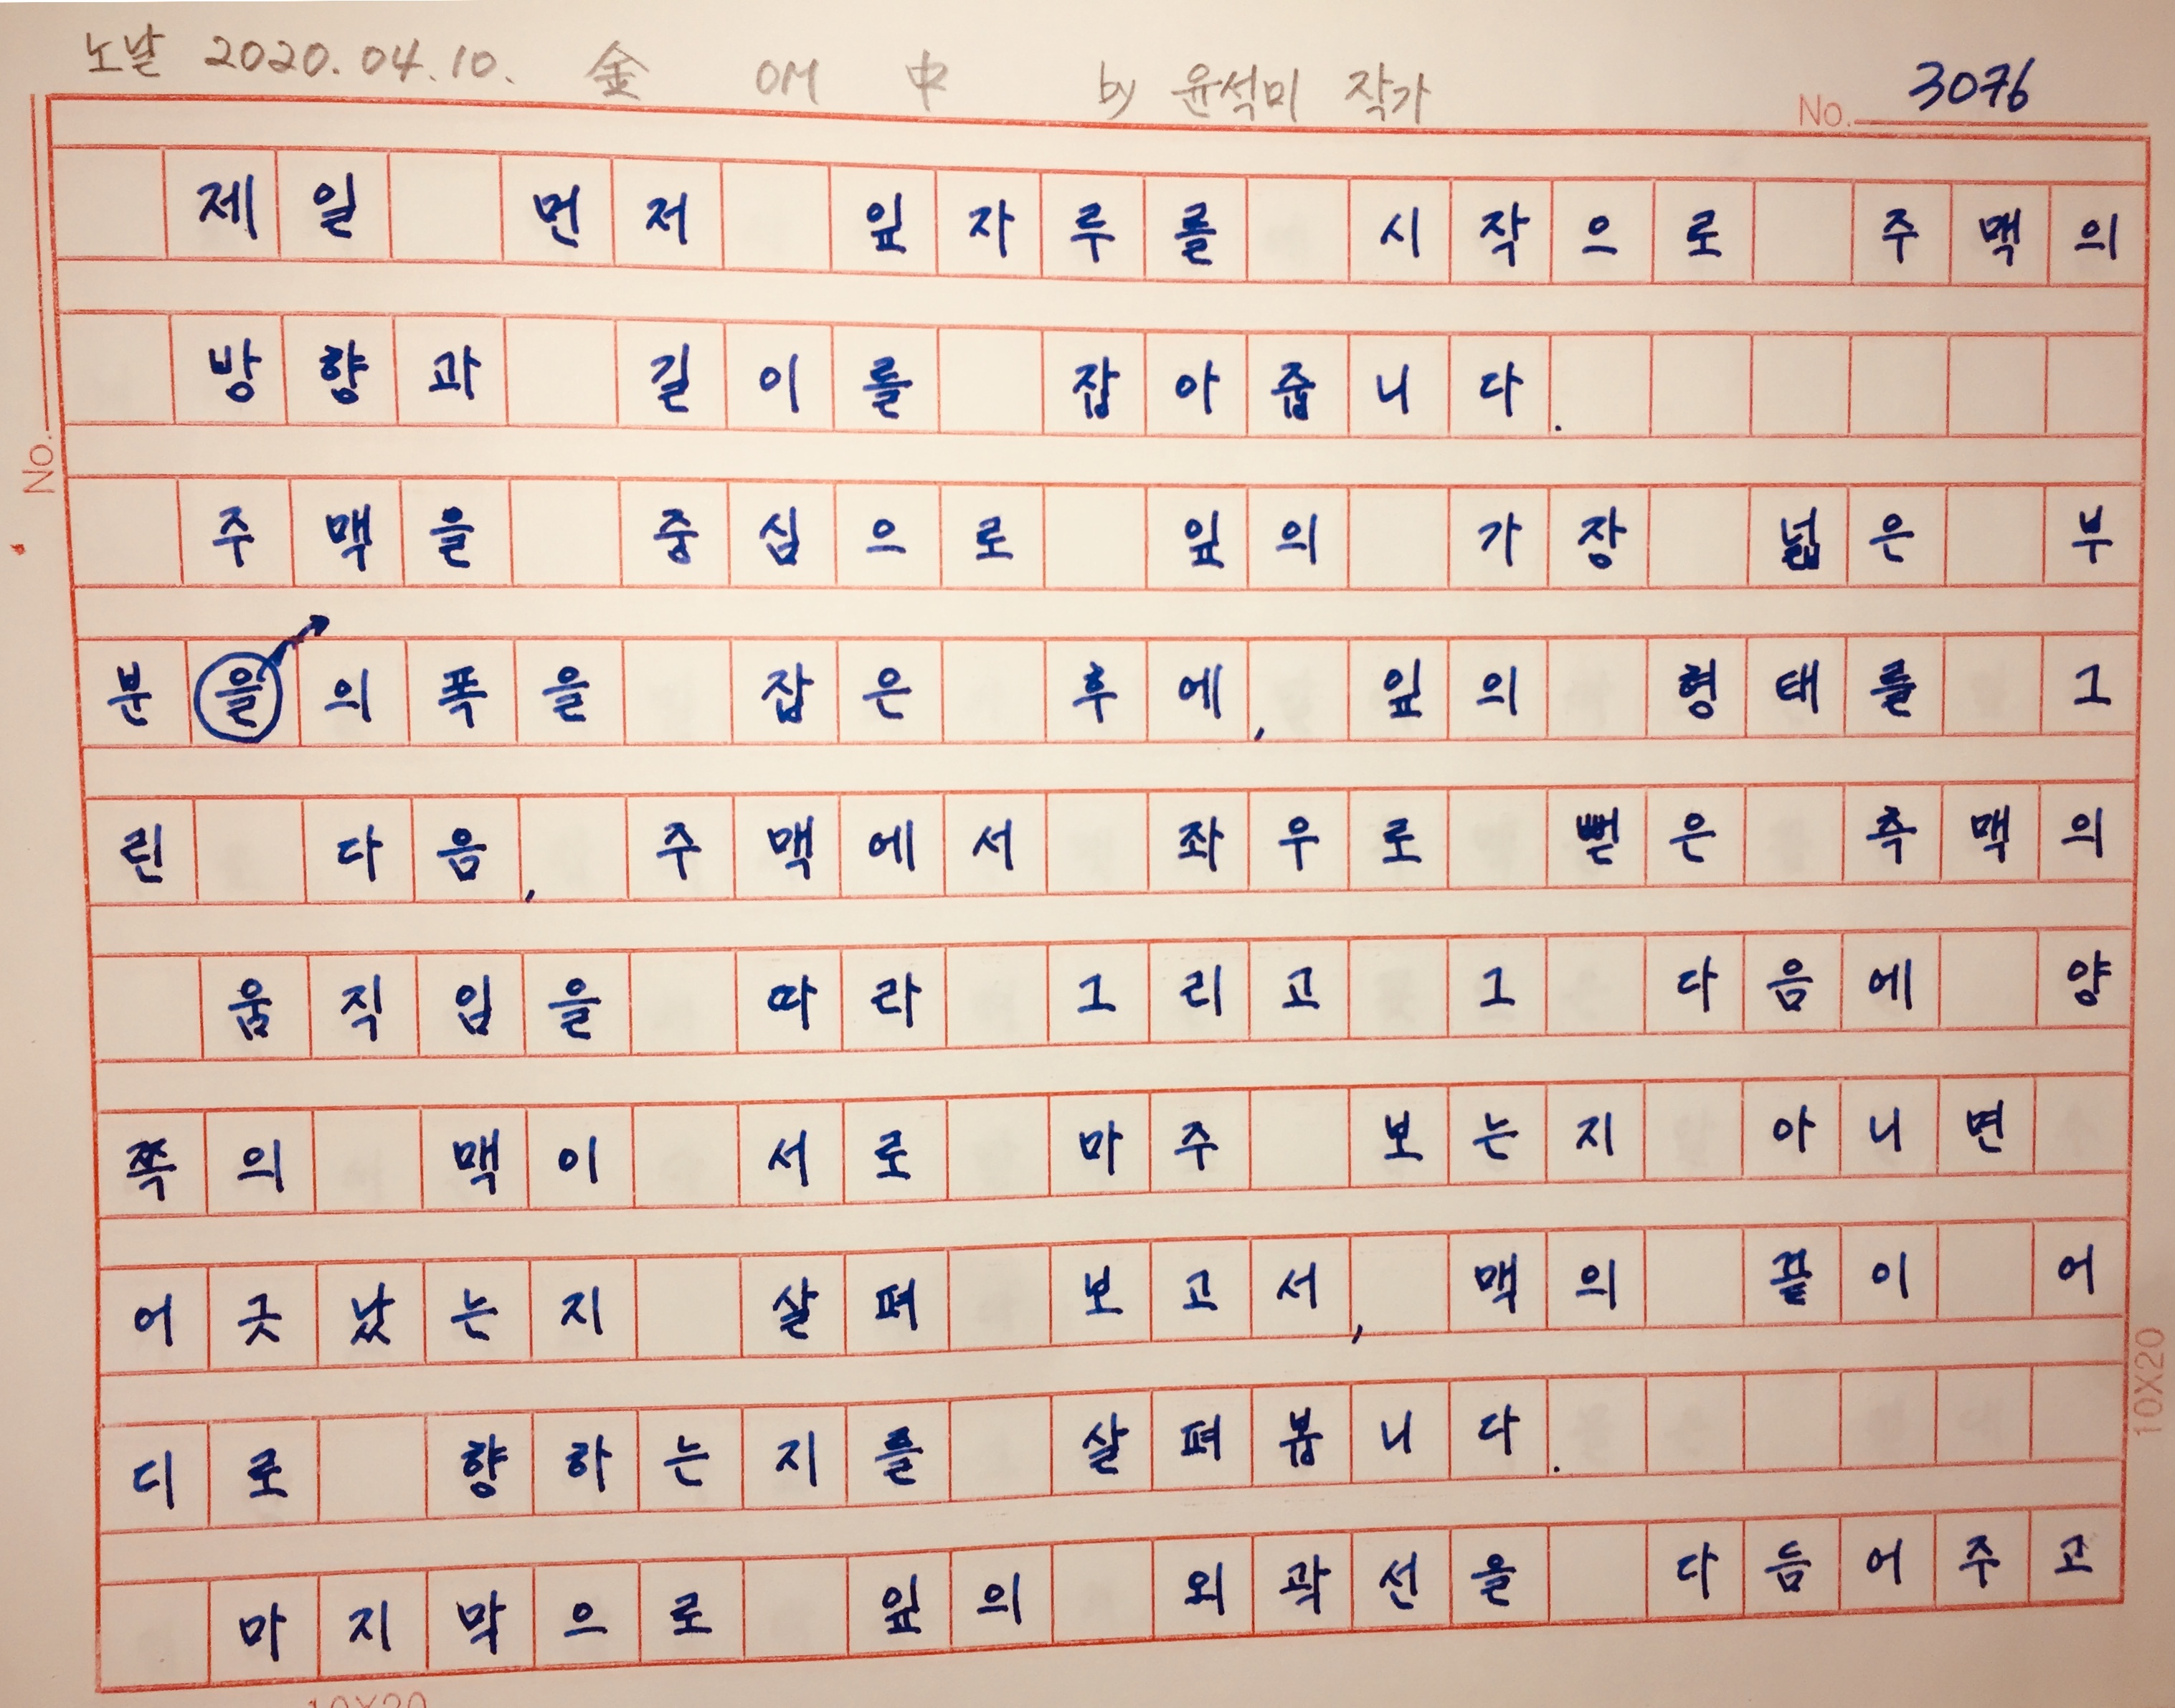 노날 2020.04.10. 金 OM 中 by 윤석미 작가
No. 3076
제일 먼저 잎자루를 시작으로 주맥의
방향과 길이를 잡아줍니다.
주맥을 중심으로 잎의 가장 넓은 부
분을의폭을 잡은 후에, 잎의 형태를 그
린 다음, 주맥에서 좌우로 뻗은 측맥의
움직임을 따라 그리고 그 다음에 양
쪽의 맥이 서로 마주 보는지 아니면
어긋났는지 살펴 보고서, 맥의 끝이 어
디로 향하는지를 살펴봅니다.
마지막으로 잎의 외곽선을 다듬어주고
No.
10X20
10X20